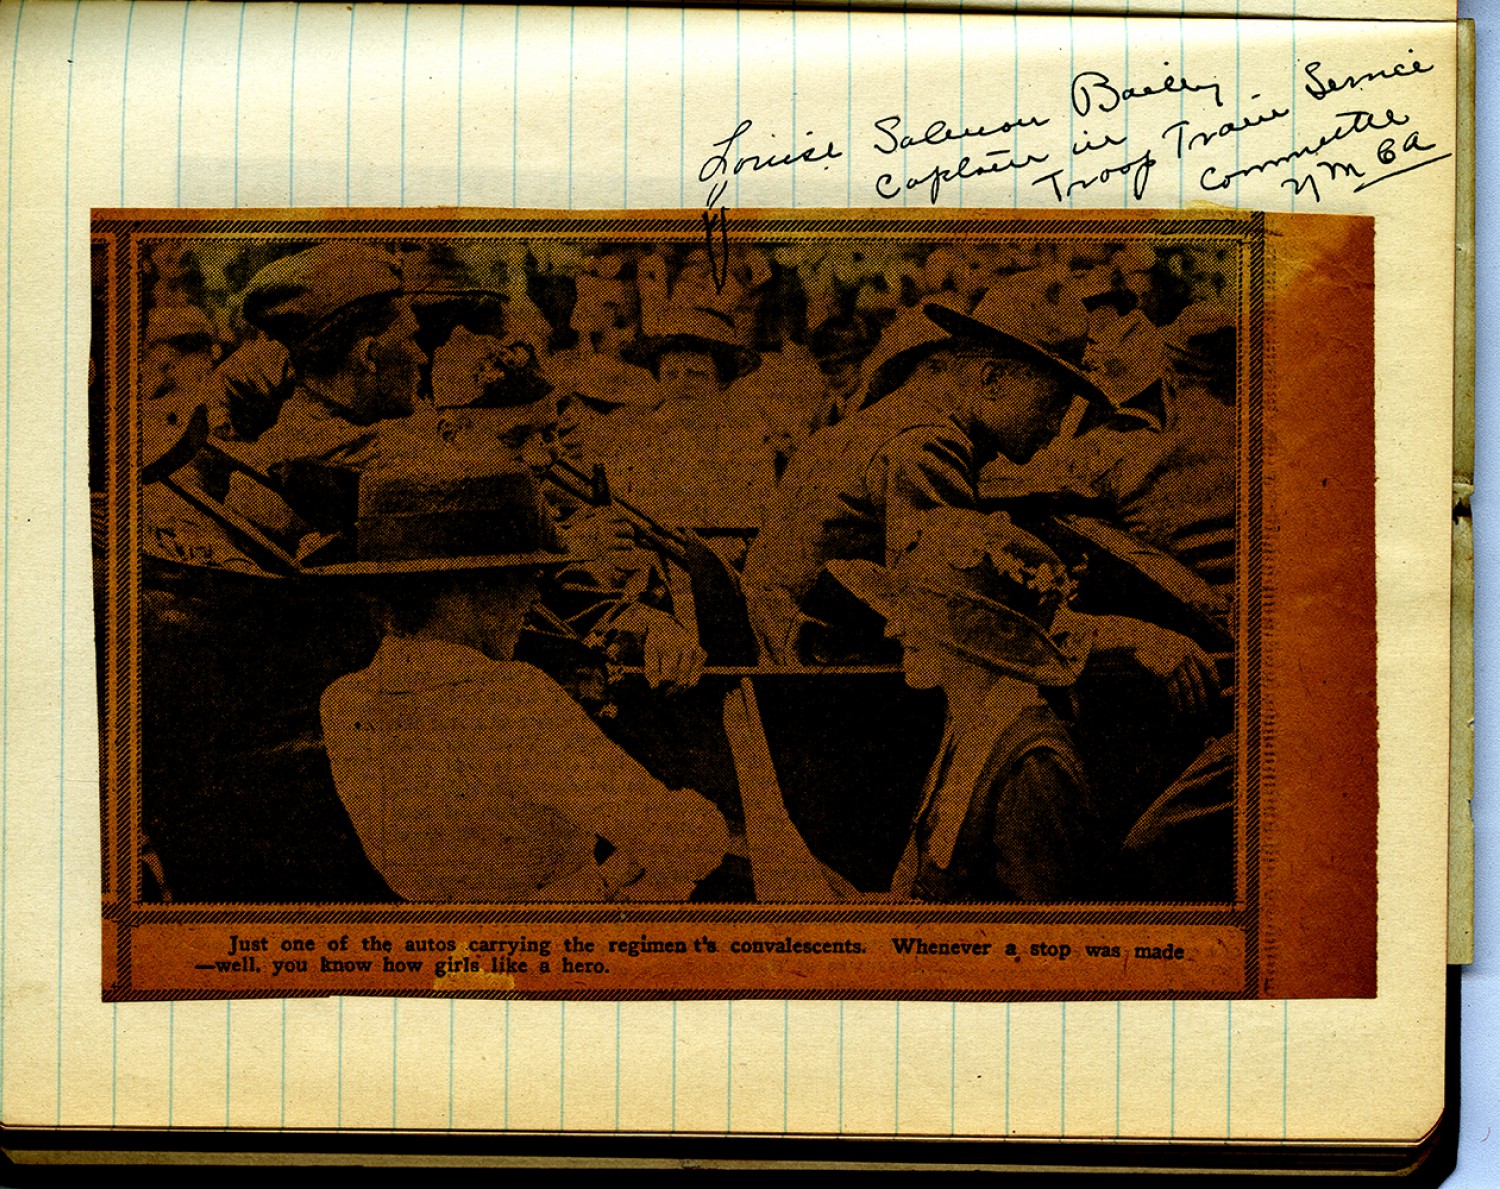 Louise Salmon Bailey
Captain in
Troop Train Service
Committee
YMCA
Just one of the autos carrying the regiment's convalescents. Whenever a stop was made
—well, you know how girls like a hero.